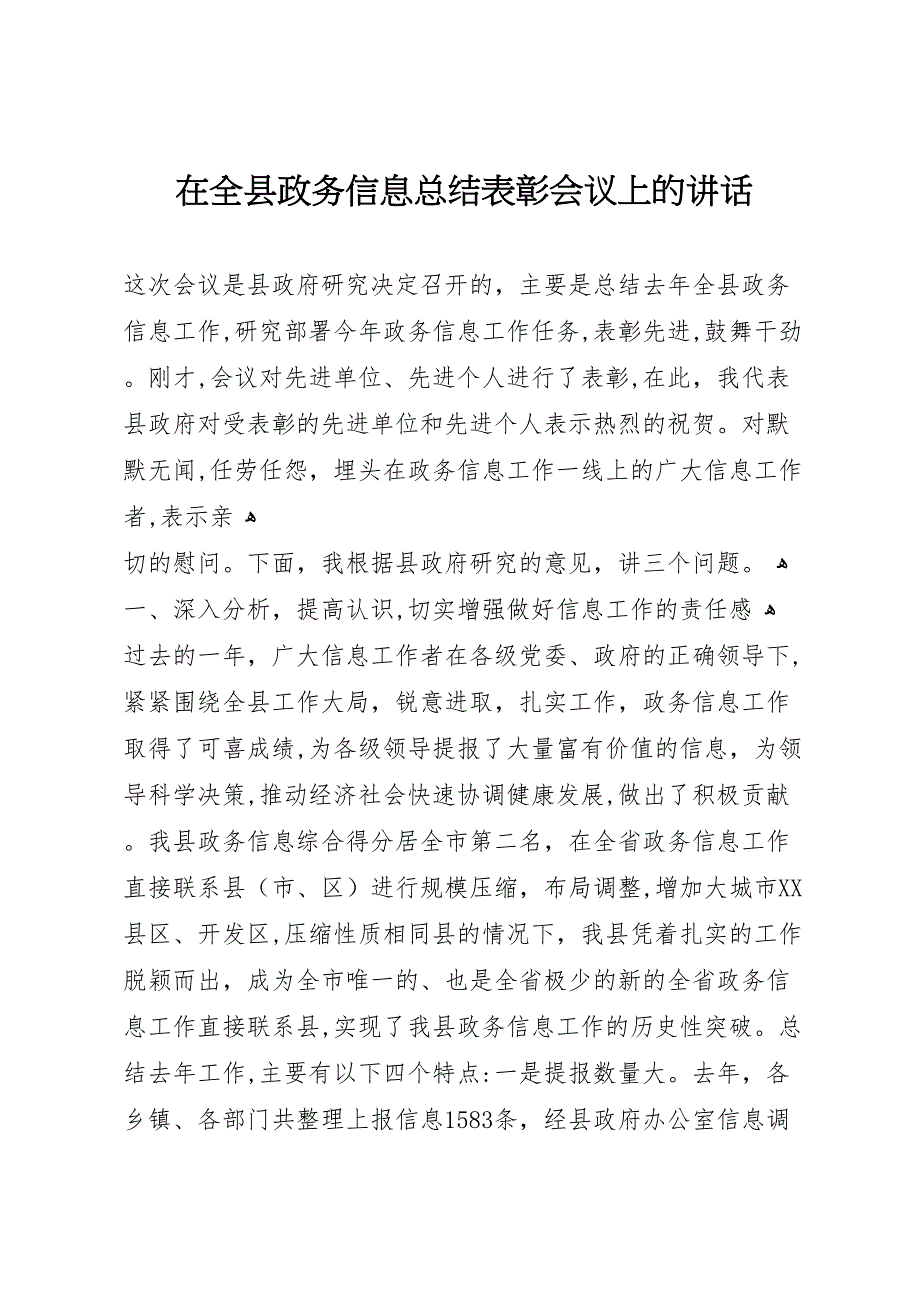 在全县政务信息总结表彰会议上的讲话
这次会议是县政府研究决定召开的，主要是总结去年全县政务
信息工作,研究部署今年政务信息工作任务,表彰先进,鼓舞干劲
。刚才,会议对先进单位、先进个人进行了表彰,在此，我代表
县政府对受表彰的先进单位和先进个人表示热烈的祝贺。对默
默无闻,任劳任怨，埋头在政务信息工作一线上的广大信息工作
者,表示亲 ﻫ
切的慰问。下面，我根据县政府研究的意见，讲三个问题。 ﻫ
一、深入分析，提高认识,切实增强做好信息工作的责任感 ﻫ
过去的一年，广大信息工作者在各级党委、政府的正确领导下,
紧紧围绕全县工作大局，锐意进取，扎实工作，政务信息工作
取得了可喜成绩,为各级领导提报了大量富有价值的信息，为领
导科学决策,推动经济社会快速协调健康发展,做出了积极贡献
。我县政务信息综合得分居全市第二名，在全省政务信息工作
直接联系县（市、区）进行规模压缩，布局调整,增加大城市XX
县区、开发区,压缩性质相同县的情况下，我县凭着扎实的工作
脱颖而出，成为全市唯一的、也是全省极少的新的全省政务信
息工作直接联系县,实现了我县政务信息工作的历史性突破。总
结去年工作,主要有以下四个特点:一是提报数量大。去年，各
乡镇、各部门共整理上报信息1583条，经县政府办公室信息调